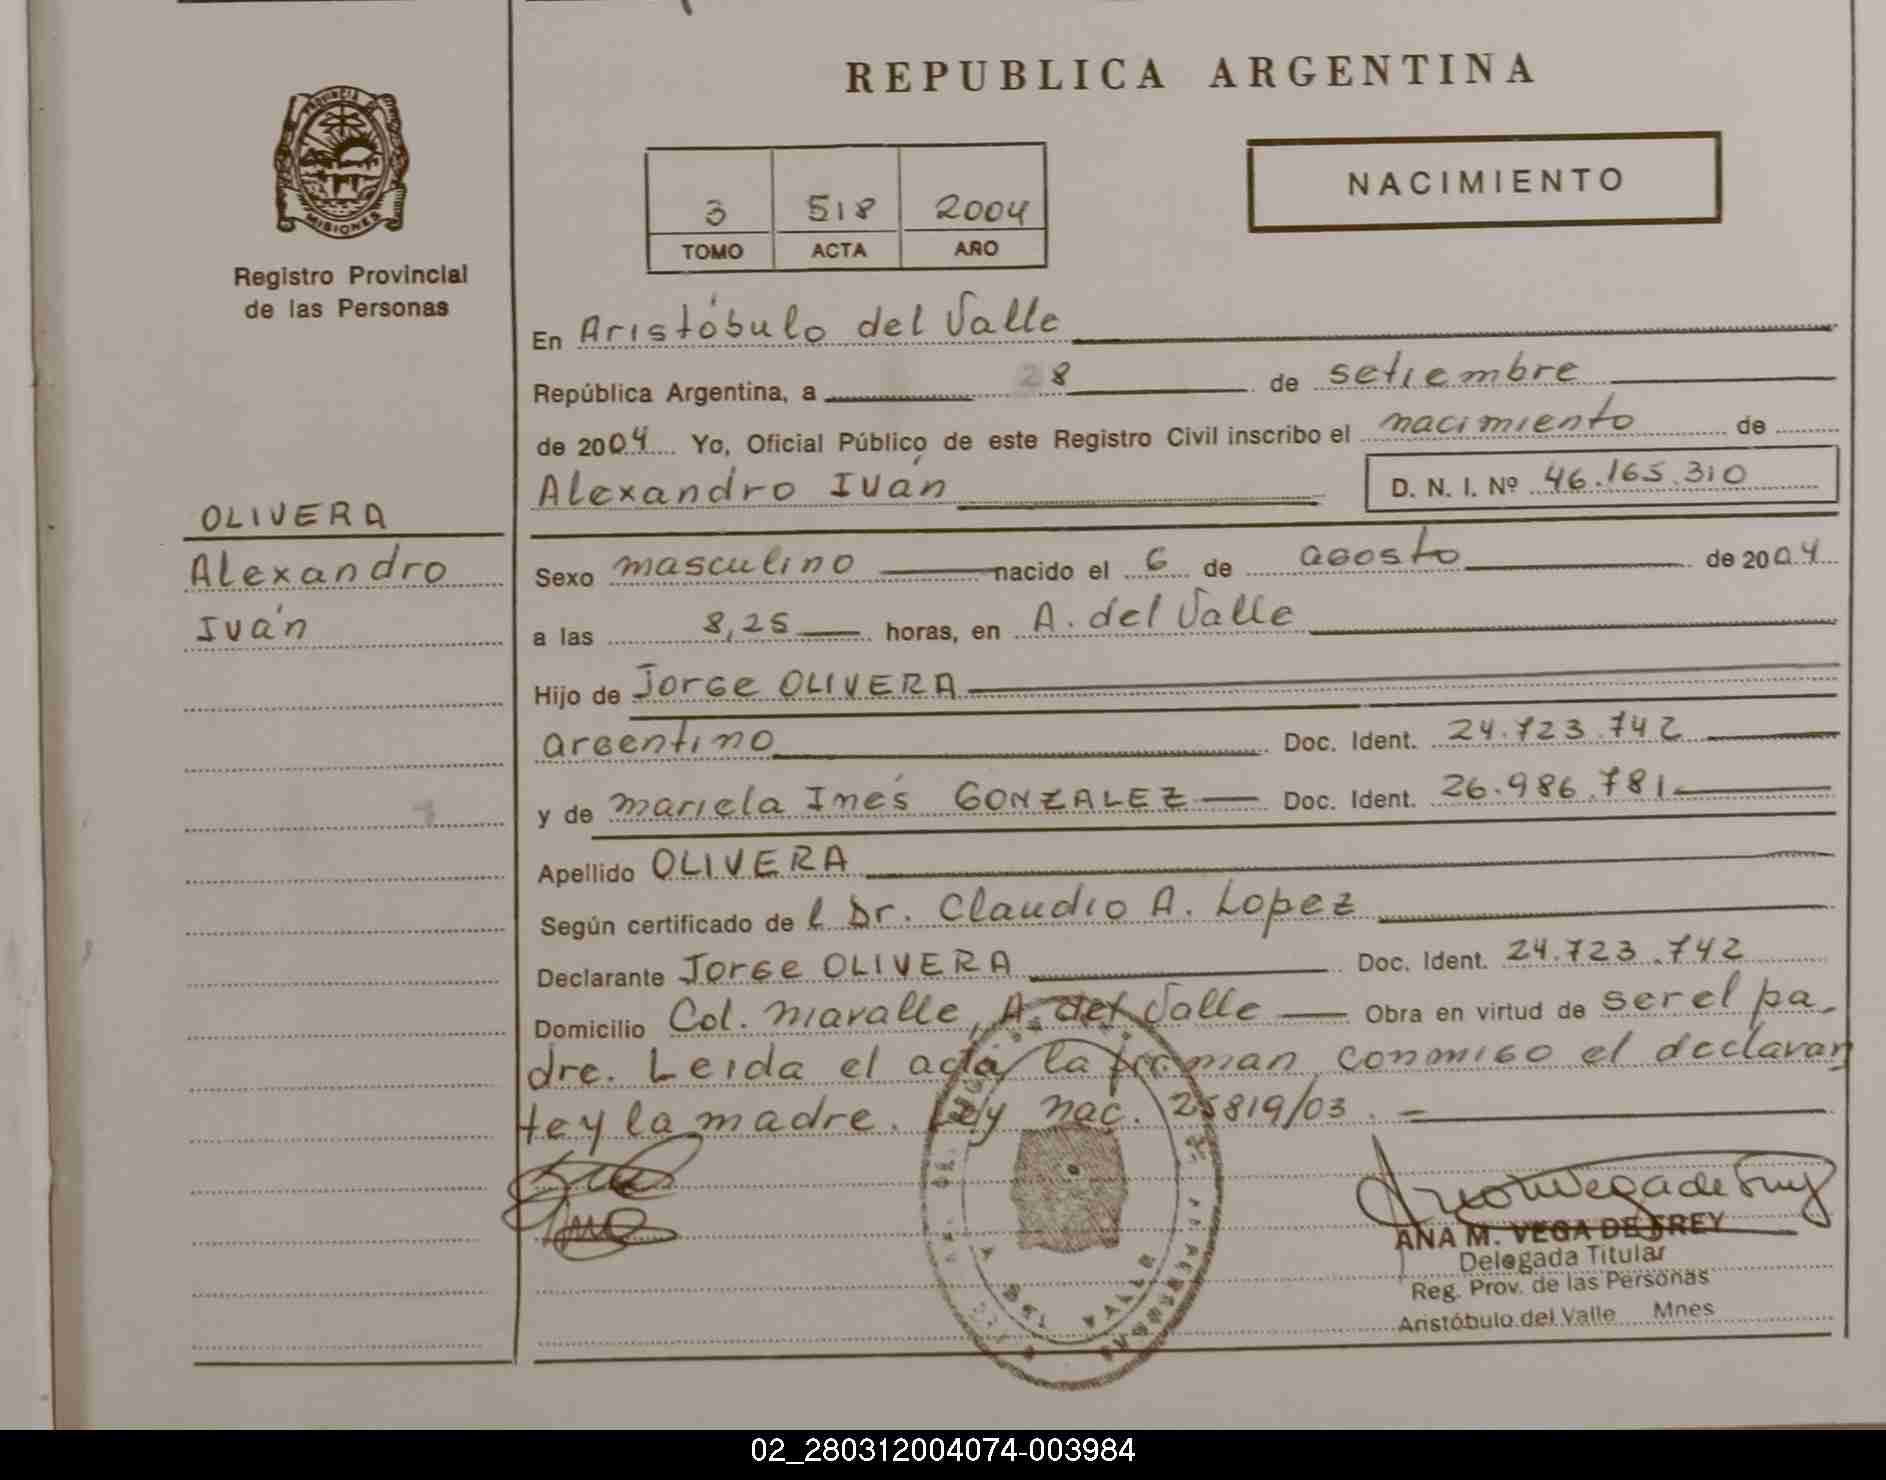 REPUBLICA ARGENTINA
PROVINCIA DE
MISIONES
Registro Provincial
de las Personas
3 518 2004
TOMO ACTA AÑO
NACIMIENTO
En Aristóbulo del Valle
República Argentina, a 28 de setiembre
de 2004 Yo, Oficial Público de este Registro Civil inscribo el nacimiento de
Alexandro Iván D. N. I. Nº 46.165.310
OLIVERA
Alexandro
Iván
Sexo masculino nacido el 6 de agosto de 2004
a las 8,25 horas, en A. del Valle
Hijo de Jorge OLIVERA
argentino Doc. Ident. 24.723.742
y de mariela Inés GONZALEZ Doc. Ident. 26.986.781
Apellido OLIVERA
Según certificado de l Dr. Claudio A. Lopez
Declarante Jorge OLIVERA Doc. Ident. 24.723.742
Domicilio Col. Maralle, A. del Valle Obra en virtud de ser el pa-
dre. Leida el acta la firman conmigo el declaran
te y la madre. Ley nac. 25819/03.
ANA M. VEGA DE FREY
Delegada Titular
Reg. Prov. de las Personas
Aristóbulo del Valle Mnes
02_280312004074-003984